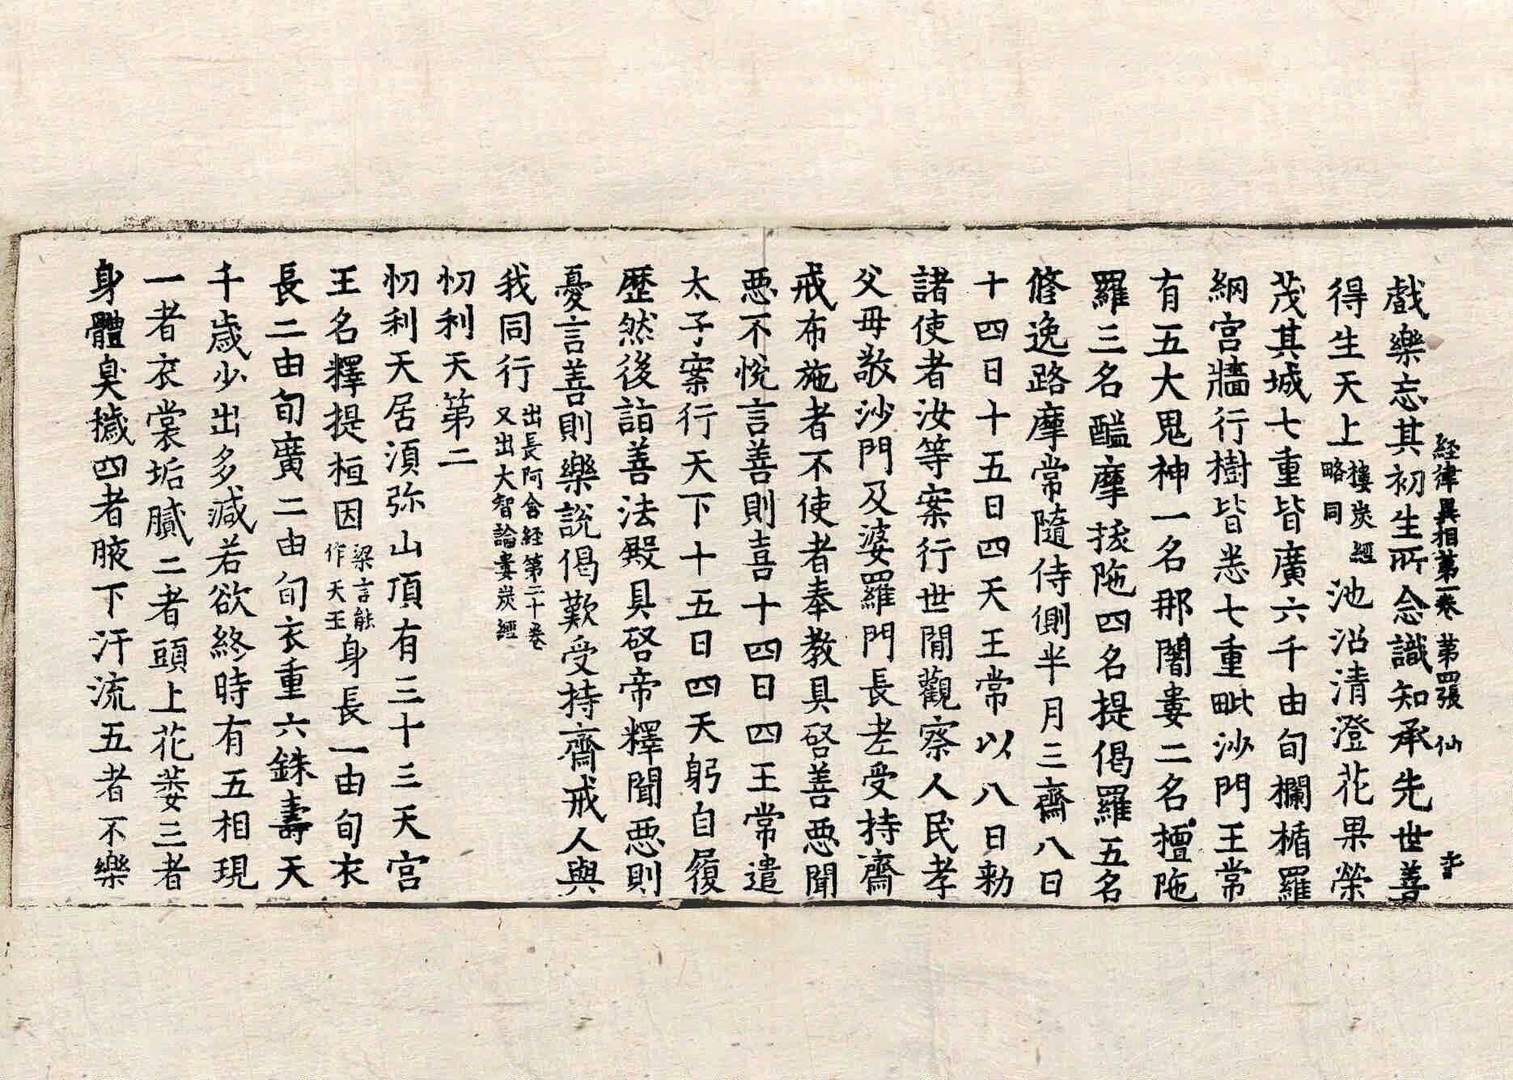 経律異相第一卷 第四張 仙
戲樂忘其初生所念識知承先世善
得生天上樓炭經略同池沼清澄花果榮
茂其城七重皆廣六千由旬欄楯羅
網宮牆行樹皆悉七重毗沙門王常
有五大鬼神一名那闍婁二名檀陁
羅三名醯摩拔陁四名提偈羅五名
脩逸路摩常隨侍側半月三齋八日
十四日十五日四天王常以八日勑
諸使者汝等案行世間觀察人民孝
父母敬沙門及婆羅門長老受持齋
戒布施者不使者奉教具啓善惡聞
惡不悅言善則喜十四日四王常遣
太子案行天下十五日四天躬自履
歷然後詣善法殿具啓帝釋聞惡則
憂言善則樂說偈歎受持齋戒人與
我同行出長阿含經第二十卷又出大智論婁炭經
忉利天第二
忉利天居須弥山頂有三十三天宮
王名釋提桓因梁言能作天王身長一由旬衣
長二由旬廣二由旬衣重六銖壽天
千歲少出多減若欲終時有五相現
一者衣裳垢膩二者頭上花萎三者
身體臭穢四者腋下汗流五者不樂